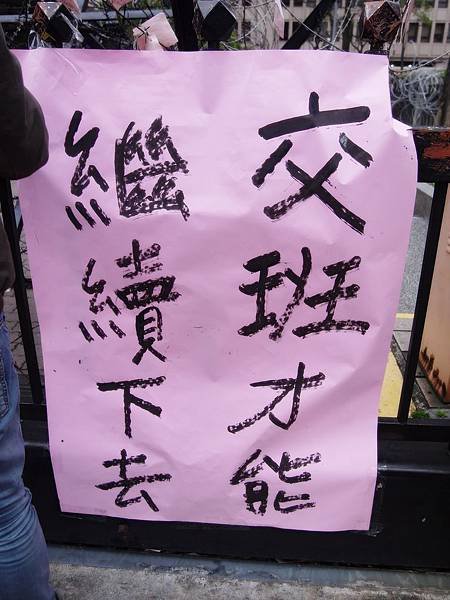 交班才能
繼續下去